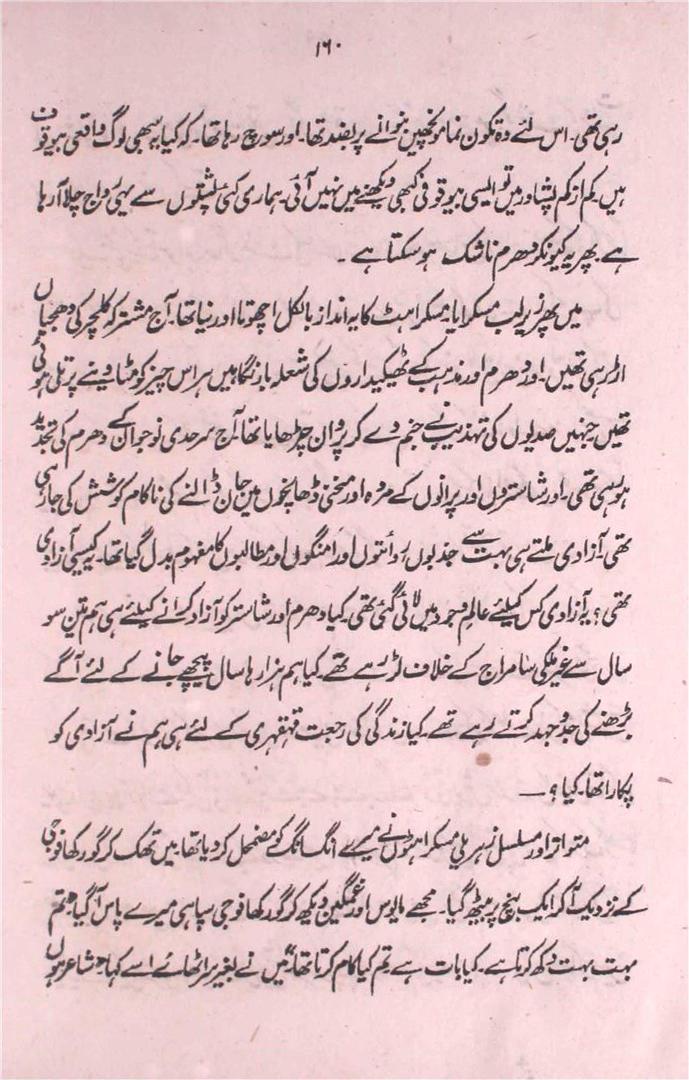 ۱۶۰
رہی تھی۔ اس لئے وہ تکون نما مونچھیں بنوانے پر بضد تھا۔ اور سوچ رہا تھا۔ کہ کیا یہ سبھی لوگ واقعی بیوقوف
ہیں کم از کم پشاور میں تو ایسی بیوقوفی کبھی دیکھنے میں نہیں آئی۔ ہماری کئی پشتوں سے یہی رواج چلا آ رہا
ہے پھر یہ کیونکر دھرم ناشک ہو سکتا ہے ۔
میں پھر زیر لب مسکرایا مسکراہٹ کا یہ انداز بالکل اچھوتا اور نیا تھا۔ آج مشترکہ کلچر کی دھجیاں
اڑ رہی تھیں۔ اور دھرم اور مذہب کے ٹھیکیداروں کی شعلہ بار نگاہیں ہر اس چیز کو مٹا دینے پر تلی ہوئی
تھیں جنہیں صدیوں کی تہذیب نے جنم دے کر پروان چڑھایا تھا۔ آج سرحدی نوجوان کے دھرم کی تجدید
ہو رہی تھی۔ اور شاستروں اور پرانوں کے مردہ اور مخنی ڈھانچوں میں جان ڈالنے کی ناکام کوشش کی جا رہی
تھی۔ آزادی ملتے ہی بہت سے جذبوں روائتوں اور امنگوں اور مطالبوں کا مفہوم بدل گیا تھا۔ یہ کیسی آزادی
تھی؟ یہ آزادی کس کیلئے عالم وجود میں لائی گئی تھی کیا دھرم اور شاستر کو آزاد کرانے کیلئے ہی ہم تین سو
سال سے غیر ملکی سامراج کے خلاف لڑ رہے تھے۔ کیا ہم ہزارہا سال پیچھے جانے کے لئے آگے
بڑھنے کی جدوجہد کرتے رہے تھے۔ کیا زندگی کی رجعت قہقہری کے لئے ہی ہم نے آزادی کو
پکارا تھا۔ کیا؟—
متواتر اور مسلسل زہریلی مسکراہٹوں نے میرے انگ انگ کو مضمحل کر دیا تھا۔ میں تھک کر گورکھا فوجی
کے نزدیک آ کر ایک بنچ پر بیٹھ گیا۔ مجھے مایوس اور غمگین دیکھ کر گورکھا فوجی سپاہی میرے پاس آ گیا "تم
بہت بہت دکھ کرتا ہے۔ کیا بات ہے تم کیا کام کرتا تھا" میں نے بغیر سر اٹھائے اسے کہا "شاعر ہوں